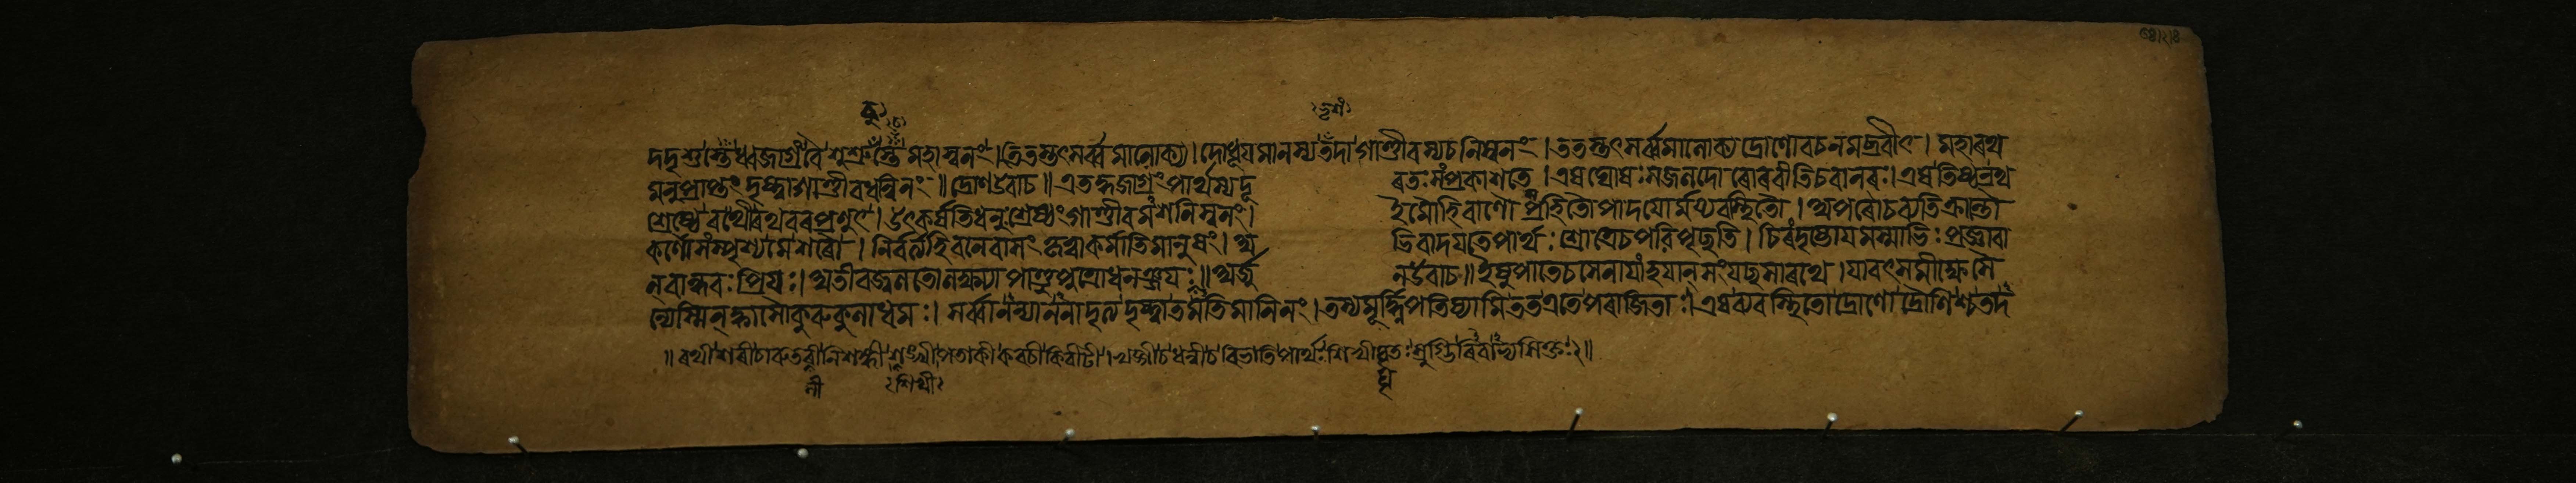 বু ভৃশং
দদৃশুস্তে ধ্বজাগ্রং বৈ শুশ্রুস্তে মহাস্বনং। দোধূয়মানস্য তদা গাণ্ডীবস্য চ নিস্বনং। ততস্তৎসর্ব্বমালোক্য দ্রোণো বচনমব্রবীৎ। মহাৰথ
মনুপ্রাপ্তং দৃষ্ট্বা গাণ্ডীবধন্বিনং॥ দ্রোণ উবাচ॥ এতদ্ধ্বজাগ্রং পার্থস্য দূ ৰতঃ সংপ্রকাশতে। এষ ঘোষঃ সজলদো ৰোৰবীতি চ বানৰঃ। এষ তিষ্ঠন্ৰথ
শ্রেষ্ঠে ৰথী ৰথবৰপ্রণুৎ। উৎকর্ষতি ধনুঃশ্রেষ্ঠং গাণ্ডীবমশনিস্বনং। ইমৌ হি বাণৌ সহিতৌ পাদয়োর্মে ব্যবস্থিতৌ। অপৰৌ চাপ্যতিক্রান্তৌ
কর্ণৌ সংস্পৃশ্য মে শৰৌ। হি বনে বাসং কৃত্বা কর্মাতিমানুষং। অ ভিবাদয়তে পার্থঃ শ্রোত্রে চ পৰিপৃচ্ছতি। চিৰং দৃষ্টোয়মস্মাভিঃ প্রজ্ঞাবা
ন্ বান্ধবঃ প্রিয়ঃ। অতীব জ্বলতো লক্ষ্ম্যা পাণ্ডুপুত্রো ধনঞ্জয়ঃ॥ অর্জু ন উবাচ॥ ইষুপাতে চ সেনায়াং হয়ান্ সংযচ্ছ সাৰথে। যাবৎ সমীক্ষে সৈ
ন্যেস্মিন্ ক্বাসৌ কুৰুকুলাধমঃ। সর্ব্বানন্যাননাদৃত্য দৃষ্ট্বা তমতিমানিনং। তস্য মূর্দ্ধ্নি পতিষ্যামি তত এতে পৰাজিতাঃ। এষ ব্যবস্থিতো দ্রোণো দ্রৌণিশ্চ তদ
॥ ৰথী শৰী চাৰু নিশঙ্গী শঙ্খী পতাকী কবচী কিৰীটী। খড়্গী চ ধন্বী চ বিভাতি পার্থঃ শিখী বৃতঃ স্রুগ্ভিৰিবাজ্যসিক্তঃ২॥
নী শিখী ঘৃ